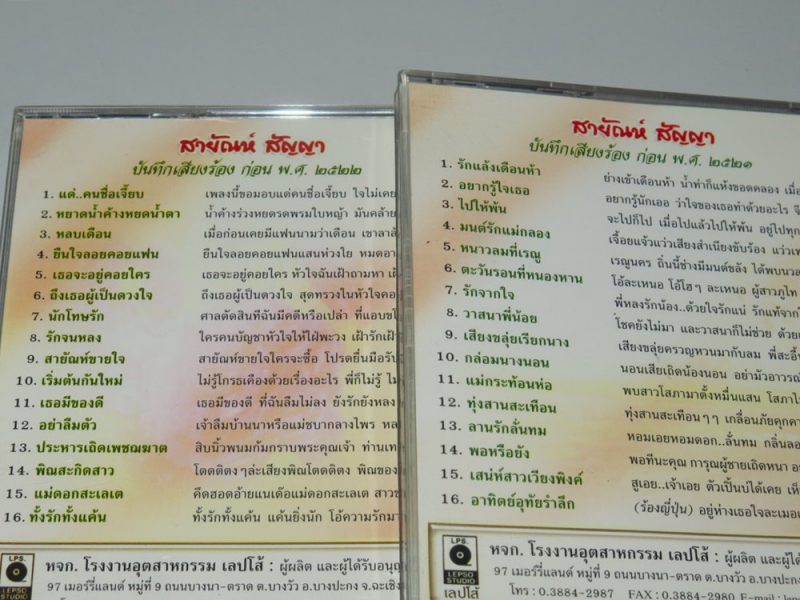 สายัณห์ สัญญา
บันทึกเสียงร้อง ก่อน พ.ศ. ๒๕๒๒
1. แด่..คนชื่อเจี๊ยบ เพลงนี้ขอมอบแด่คนชื่อเจี๊ยบ ใจไม่เคย
2. หยาดน้ำค้างหยดน้ำตา น้ำค้างร่วงหยดรดพรมใบหญ้า มันคล้าย
3. หลบเดือน เมื่อก่อนเคยมีแฟนนามว่าเดือน เขาลาลั
4. ยืนใจลอยคอยแฟน ยืนใจลอยคอยแฟนแสนห่วงใย หมดอา
5. เธอจะอยู่คอยใคร เธอจะอยู่คอยใคร หัวใจฉันเฝ้าถามหา เฝ้
6. ถึงเธอผู้เป็นดวงใจ ถึงเธอผู้เป็นดวงใจ สุดทรวงในหัวใจคอ
7. นักโทษรัก ศาลตัดสินที่ฉันมีคดีหรือเปล่า ที่แอบ
8. รักจนหลง ใครคนบัญชาหัวใจให้ไฝ่พะวง เฝ้ารักเฝ้า
9. สายัณห์ขายใจ สายัณห์ขายใจใครจะซื้อ โปรดยื่นมือรับ
10. เริ่มต้นกันใหม่ ไม่รู้โกรธเคืองด้วยเรื่องอะไร พี่ก็ไม่รู้
11. เธอมีของดี เธอมีของดี ที่ฉันลืมไม่ลง ยังรักยังหลง
12. อย่าลืมตัว เจ้าลืมบ้านนาหรือแม่ชบากลางไพร หล
13. ประหารเถิดเพชฌฆาต สิบนิ้วพนมก้มกราบพระคุณเจ้า ท่านเท
14. พิณสะกิดสาว โตดติดตงๆล่ะเสียงพิณโตดติดตง พิณของ
15. แม่ดอกสะเลเต คึดฮอดอ้ายแนเด้อแม่ดอกสะเลเต สาว
16. ทั้งรักทั้งแค้น ทั้งรักทั้งแค้น แค้นยิ่งนัก โอ้ความรัก
LPS.
LEPSO STUDIO
หจก. โรงงานอุตสาหกรรม เลปโส้ : ผู้ผลิต และผู้ได้รับอนุญ
97 เมอร์รี่แลนด์ หมู่ที่ 9 ถนนบางนา-ตราด ต.บางวัว อ.บางปะกง จ.ฉะเชิง
สายัณห์ สัญญา
บันทึกเสียงร้อง ก่อน พ.ศ. ๒๕๒๑
1. รักแล้งเดือนห้า ย่างเข้าเดือนห้า น้ำท่าก็แห้งขอดคลอง เมื่
2. อยากรู้ใจเธอ อยากรู้นักเออ ว่าใจของเธอทำด้วยอะไร
3. ไปให้พ้น จะไปก็ไป เมื่อไปแล้วไปให้พ้น อยู่ไปทุก
4. มนต์รักแม่กลอง เจื้อยแจ้วแว่วเสียงสำเนียงขับร้อง แว่ว
5. หนาวลมที่เรณู เรณูนคร ถิ่นนี้ช่างมีมนต์ขลัง ได้พบนวล
6. ตะวันรอนที่หนองหาน โอ้ละเหนอ โอ้โฮๆ ละเหนอ ผู้สาวภูไท
7. รักจากใจ พี่หลงรักน้อง..ด้วยใจรักแน่ รักแท้จาก
8. วาสนาพี่น้อย โชคยังไม่มา และวาสนาก็ไม่ช่วย ด้วย
9. เสียงขลุ่ยเรียกนาง เสียงขลุ่ยครวญหวนมากับลม พี่สะอื้
10. กล่อมนางนอน นอนเสียเถิดน้องนอน อย่ามัวอาวรณ์
11. แม่กระท้อนห่อ พบสาวโสภามาตั้งหมื่นแสน โสภาไ
12. ทุ่งสานสะเทือน ทุ่งสานสะเทือนๆๆ เกลื่อนภัยคุกคา
13. ลานรักลั่นทม หอมเอยหอมดอก..ลั่นทม กลิ่นลอ
14. พอหรือยัง พอทีนะคุณ การุณผู้ชายเถิดหนา อ
15. เสน่ห์สาวเวียงพิงค์ สูเอย..เจ้าเอย ตัวเปิ้นบ่ได้เคย เห็
16. อาทิตย์อุทัยรำลึก (ร้องญี่ปุ่น) อยู่ห่างเธอใจละเมอ
LPS.
LEPSO STUDIO
เลปโส้
หจก. โรงงานอุตสาหกรรม เลปโส้ : ผู้ผลิต และผู้ได้
97 เมอร์รี่แลนด์ หมู่ที่ 9 ถนนบางนา-ตราด ต.บางวัว อ.บางปะกง
โทร : 0.3884-2987 FAX : 0.3884-2980 E-mail : lep